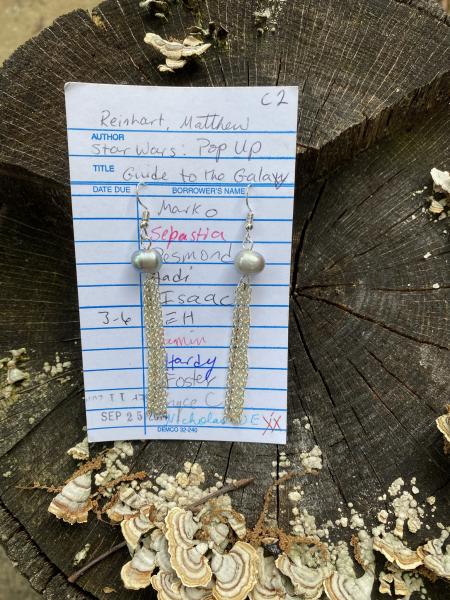 C2
Reinhart, Matthew
AUTHOR
Star Wars: Pop Up
TITLE Guide to the Galaxy
DATE DUE BORROWER'S NAME
Marko
Sebastia
Desmond
Isaac
3-6 EH
Hardy
Foster
SEP 25 Nicholas DE XX
DEMCO 32-240